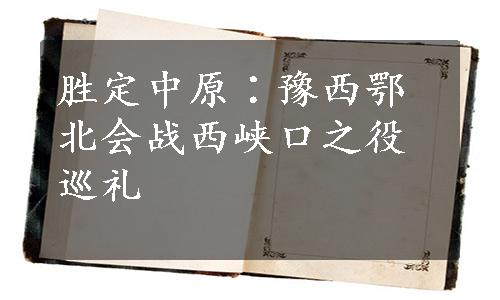 胜定中原：豫西鄂
北会战西峡口之役
巡礼